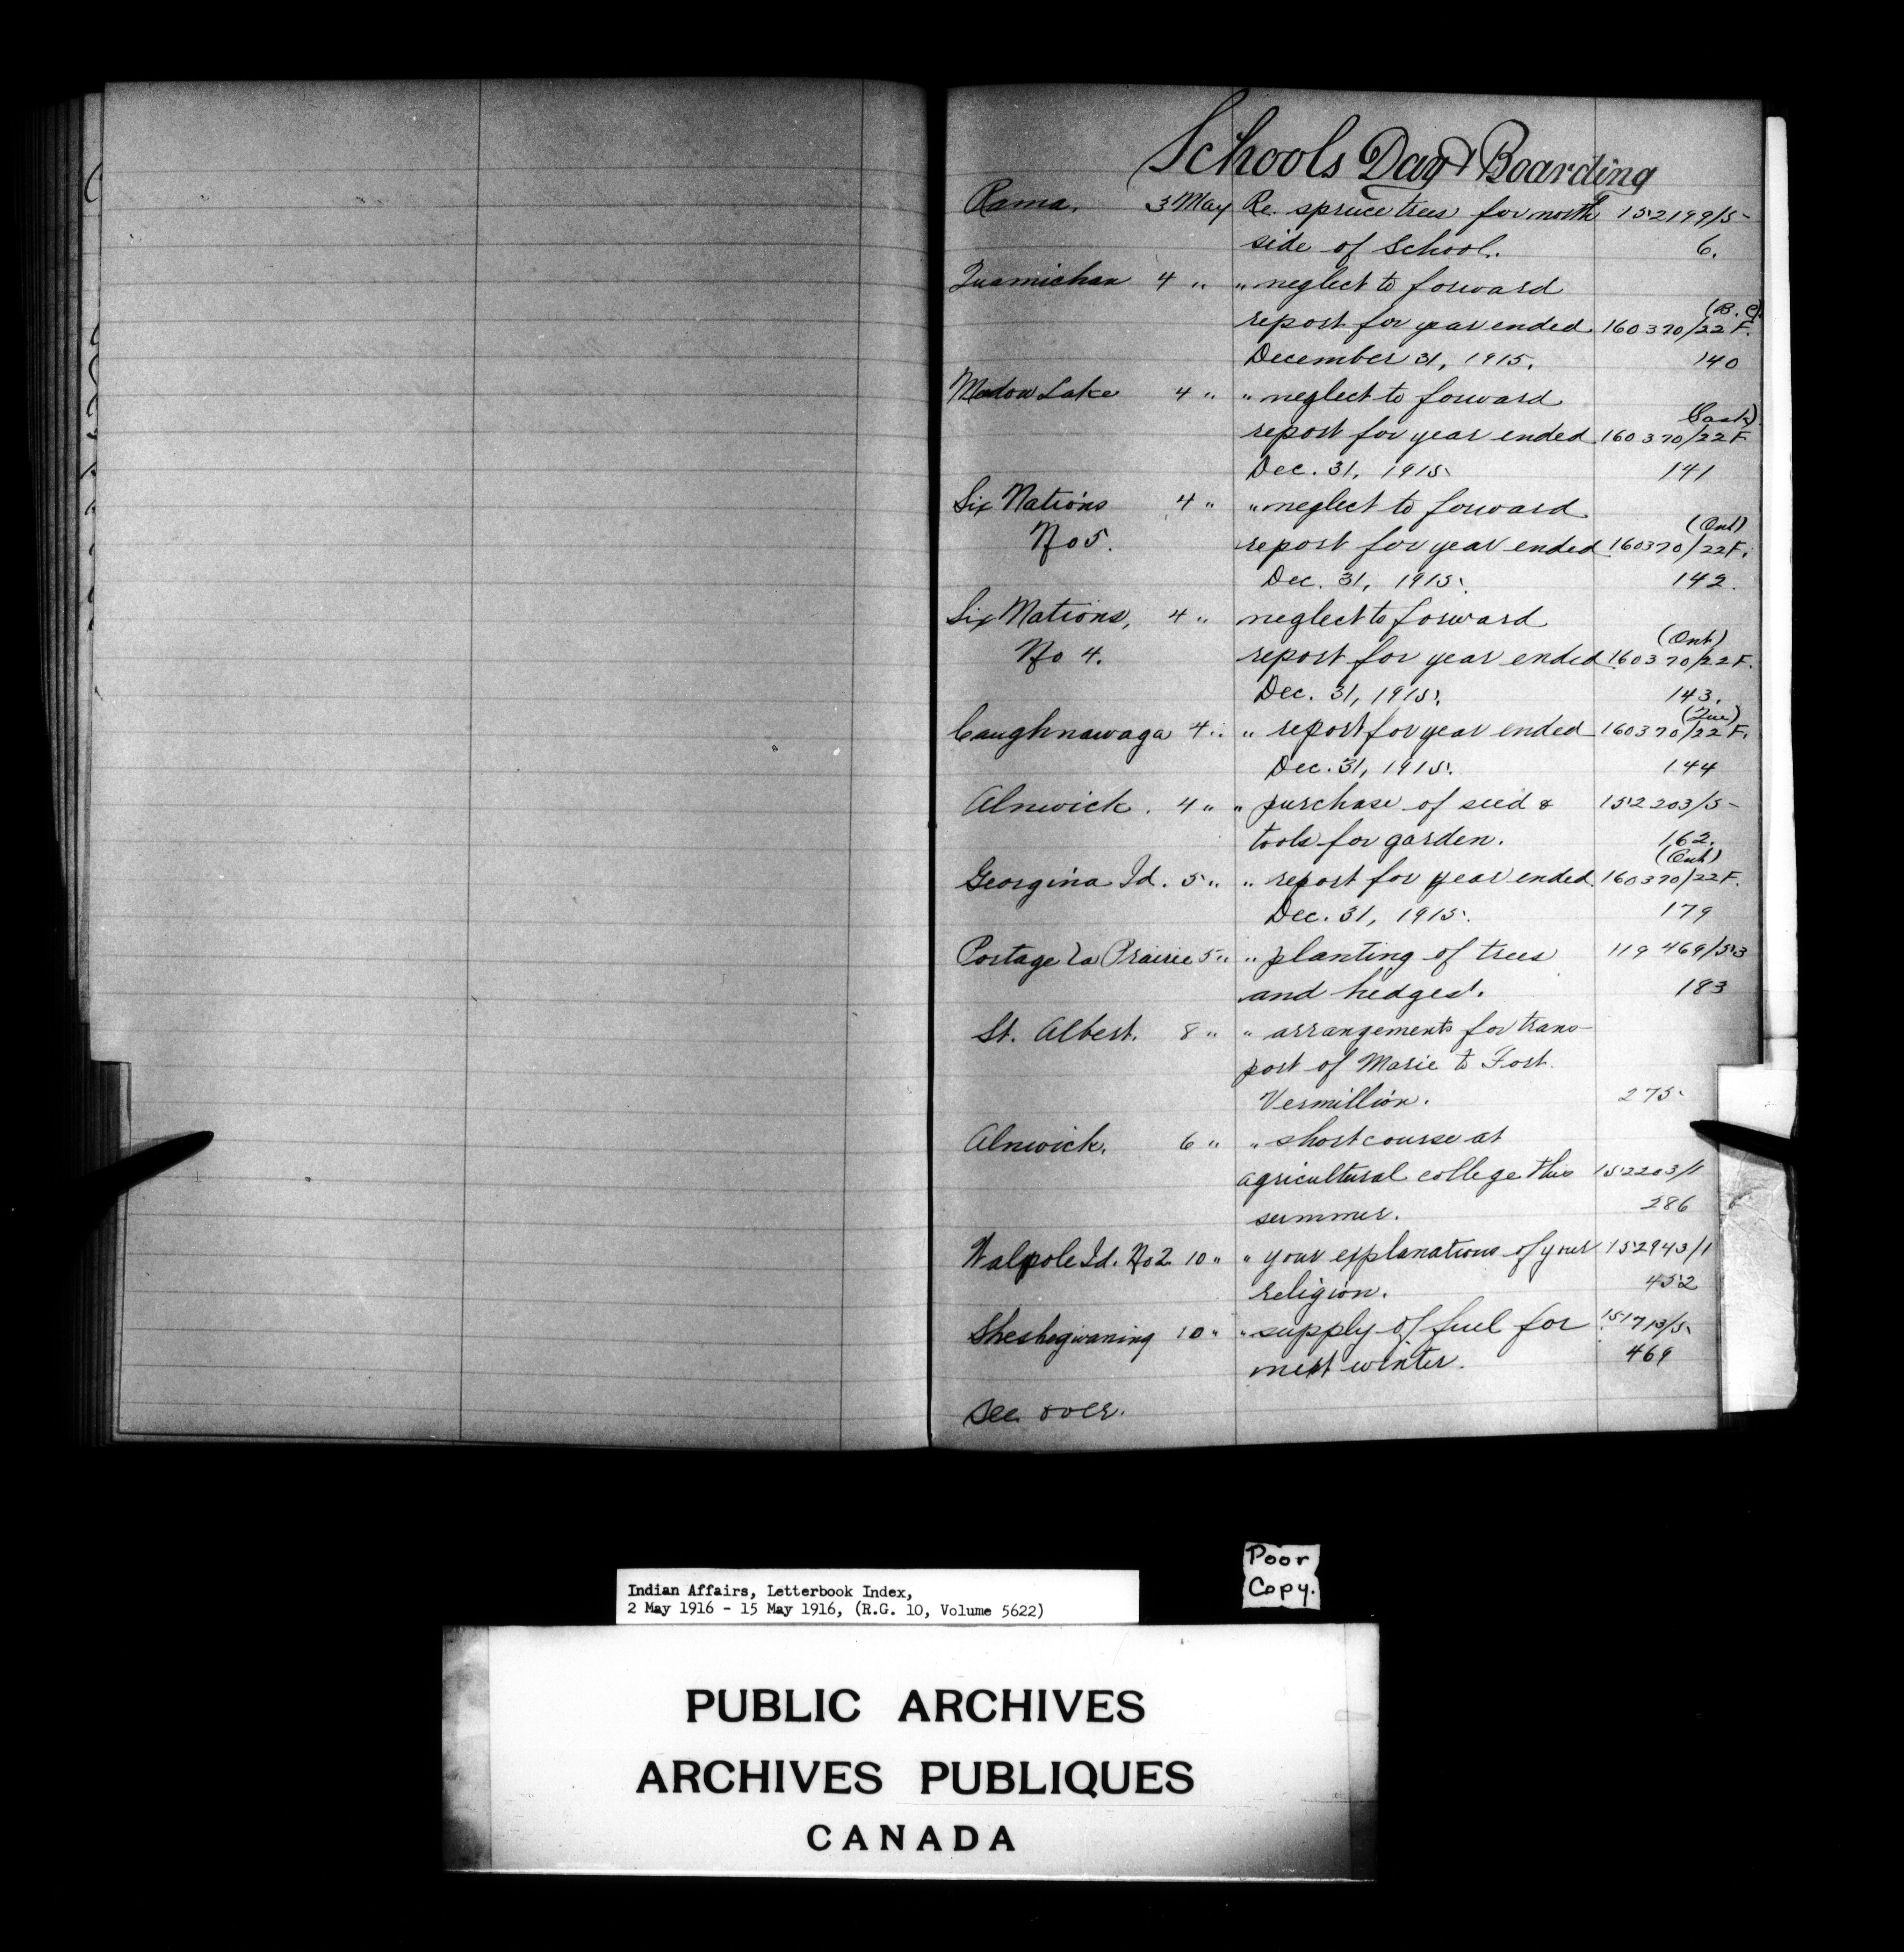 Schools Day & Boarding
Rama. 3 May Re. spruce trees for north 152199/5-
side of School. 6.
Quamichan 4 " " neglect to forward
(B.C.)
report for year ended 160370/22 F.
December 31, 1915. 140
Madow Lake 4 " " neglect to forward
(Sask)
report for year ended 160370/22 F
Dec. 31, 1915. 141
Six Nations 4 " " neglect to forward
(Ont)
No 5. report for year ended 160370/22 F.
Dec. 31, 1915. 142.
Six Nations, 4 " neglect to forward
(Ont)
No 4. report for year ended 160370/22 F.
Dec. 31, 1915. 143.
(Que)
Caughnawaga 4 " " report for year ended 160370/22 F.
Dec. 31, 1915. 144
Alnwick. 4 " " purchase of seed & 152203/5-
tools for garden. 162.
(Ont)
Georgina Id. 5 " " report for year ended 160370/22 F.
Dec. 31, 1915. 179
Portage La Prairie 5 " " planting of trees 119469/53
and hedges. 183
St. Albert. 8 " " arrangements for trans-
port of Marie to Fort
Vermillion. 275
Alnwick. 6 " " short course at
agricultural college this 152203/1
summer. 286
Walpole Id. No 2 10 " " your explanations of your 152943/1
religion. 452
Sheshegwaning 10 " " supply of fuel for 151713/5
next winter. 469
See over.
Poor
Copy.
Indian Affairs, Letterbook Index,
2 May 1916 - 15 May 1916, (R.G. 10, Volume 5622)
PUBLIC ARCHIVES
ARCHIVES PUBLIQUES
CANADA